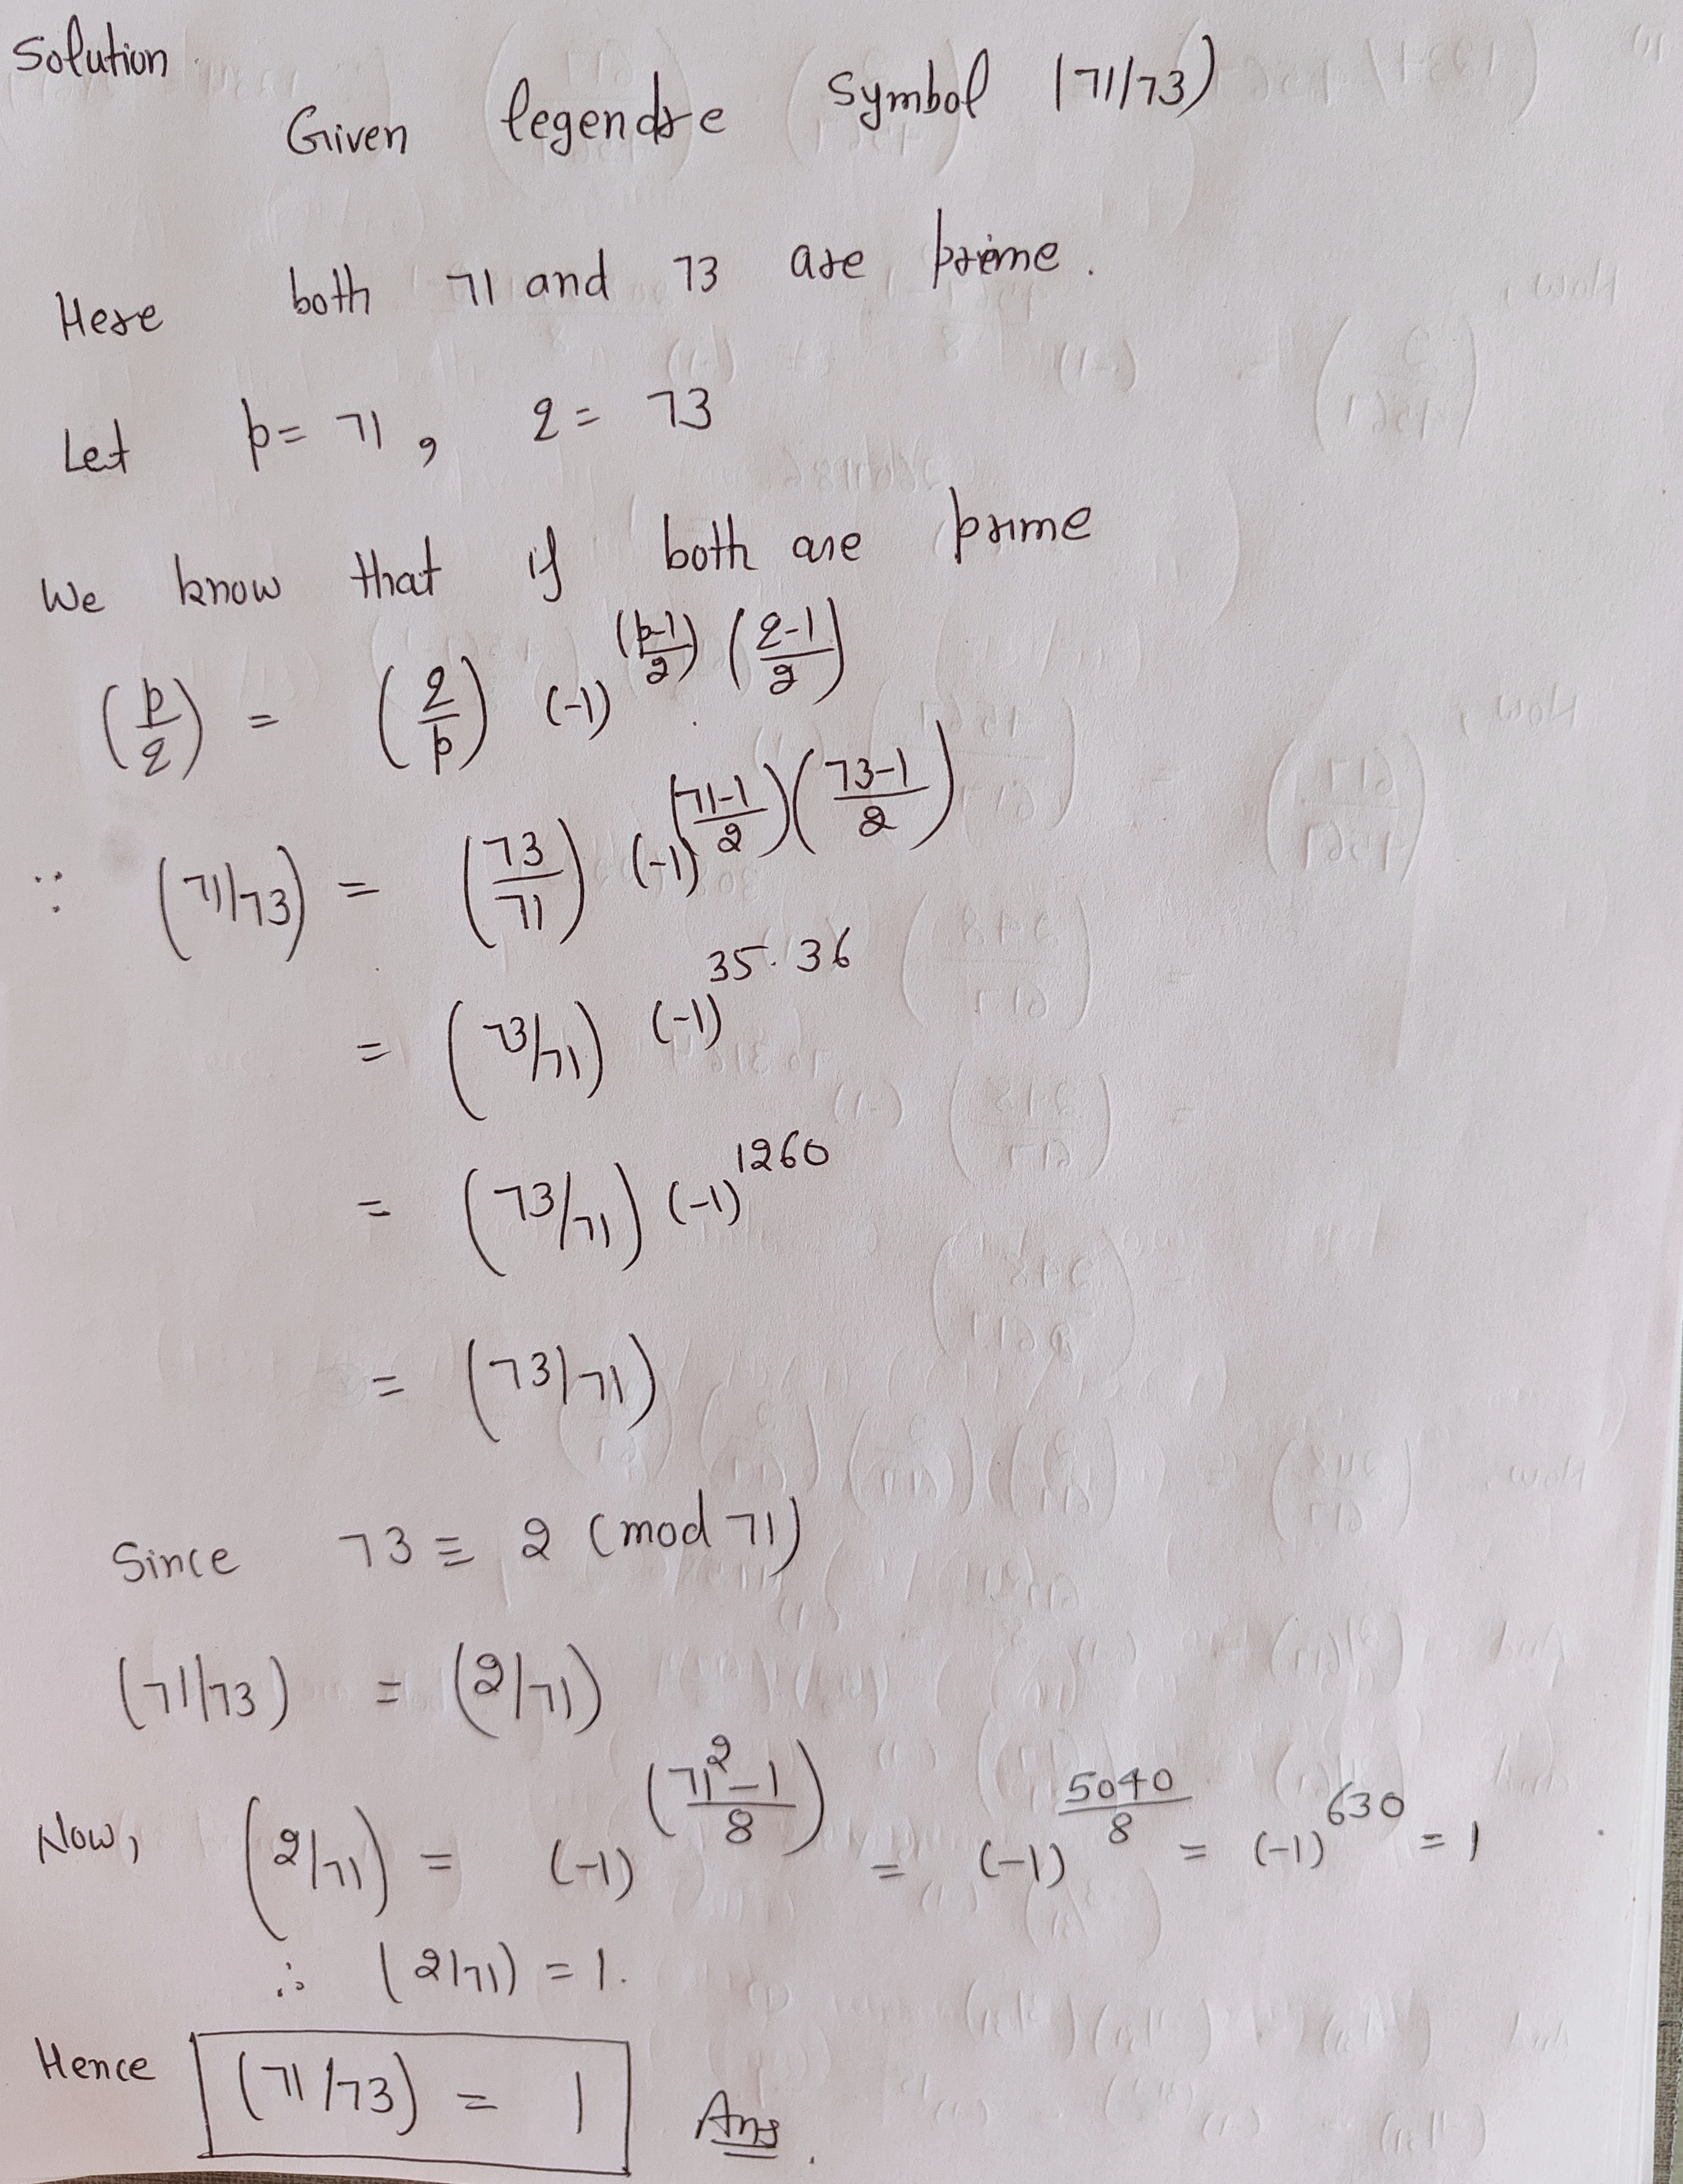 Solution
Given legendre Symbol (71/73)
Here both 71 and 73 are prime.
Let p = 71, q = 73
We know that if both are prime
(p/q) = (q/p) (-1)^((p-1)/2) ((q-1)/2)
∵ (71/73) = (73/71) (-1)^((71-1)/2)((73-1)/2)
= (73/71) (-1)^35.36
= (73/71) (-1)^1260
= (73/71)
Since 73 ≡ 2 (mod 71)
(71/73) = (2/71)
Now, (2/71) = (-1)^((71²-1)/8) = (-1)^(5040/8) = (-1)^630 = 1
∴ (2/71) = 1.
Hence (71/73) = 1 Ans.